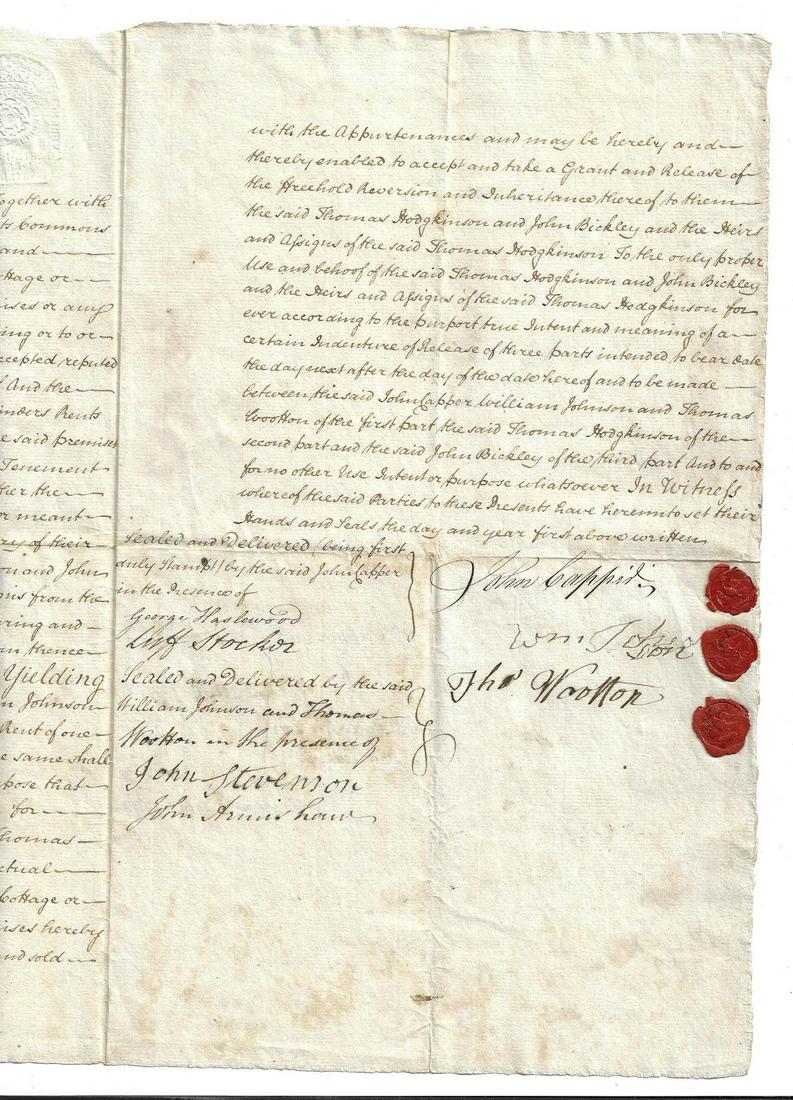 ogether with
ts Commons
and
ttage or
ises or any
ing or to or
ccepted, reputed
And the
inders Rents
e said premises
Tenement
ther the
or meant
ay of their
on and John
ns from the
ring and
in thence
Yielding
n Johnson
Rent of one
e same shall
pose that
for
homas
ctual
Cottage or
ises hereby
and sold
with the Appurtenances and may be hereby and
thereby enabled to accept and take a Grant and Release of
the Freehold Reversion and Inheritance thereof to them
the said Thomas Hodgkinson and John Bickley and the Heirs
and Assigns of the said Thomas Hodgkinson To the only proper
Use and behoof of the said Thomas Hodgkinson and John Bickley
and the Heirs and Assigns of the said Thomas Hodgkinson for
ever according to the purport true Intent and meaning of a
certain Indenture of Release of three parts intended to bear date
the day next after the day of the date hereof and to be made
between the said John Capper William Johnson and Thomas
Wootton of the first part the said Thomas Hodgkinson of the
second part and the said John Bickley of the third part And to and
for no other Use Intent or purpose whatsoever In Witness
whereof the said Parties to these Presents have hereunto set their
Hands and Seals the day and year first above written
Sealed and Delivered (being first
duly Stampt) by the said John Capper
in the Presence of
George Haslewood
Luff Stocker
Sealed and Delivered by the said
William Johnson and Thomas
Wootton in the presence of
John Stevenson
John Armishaw
John Capper
Wm Johnson
Thos Wootton